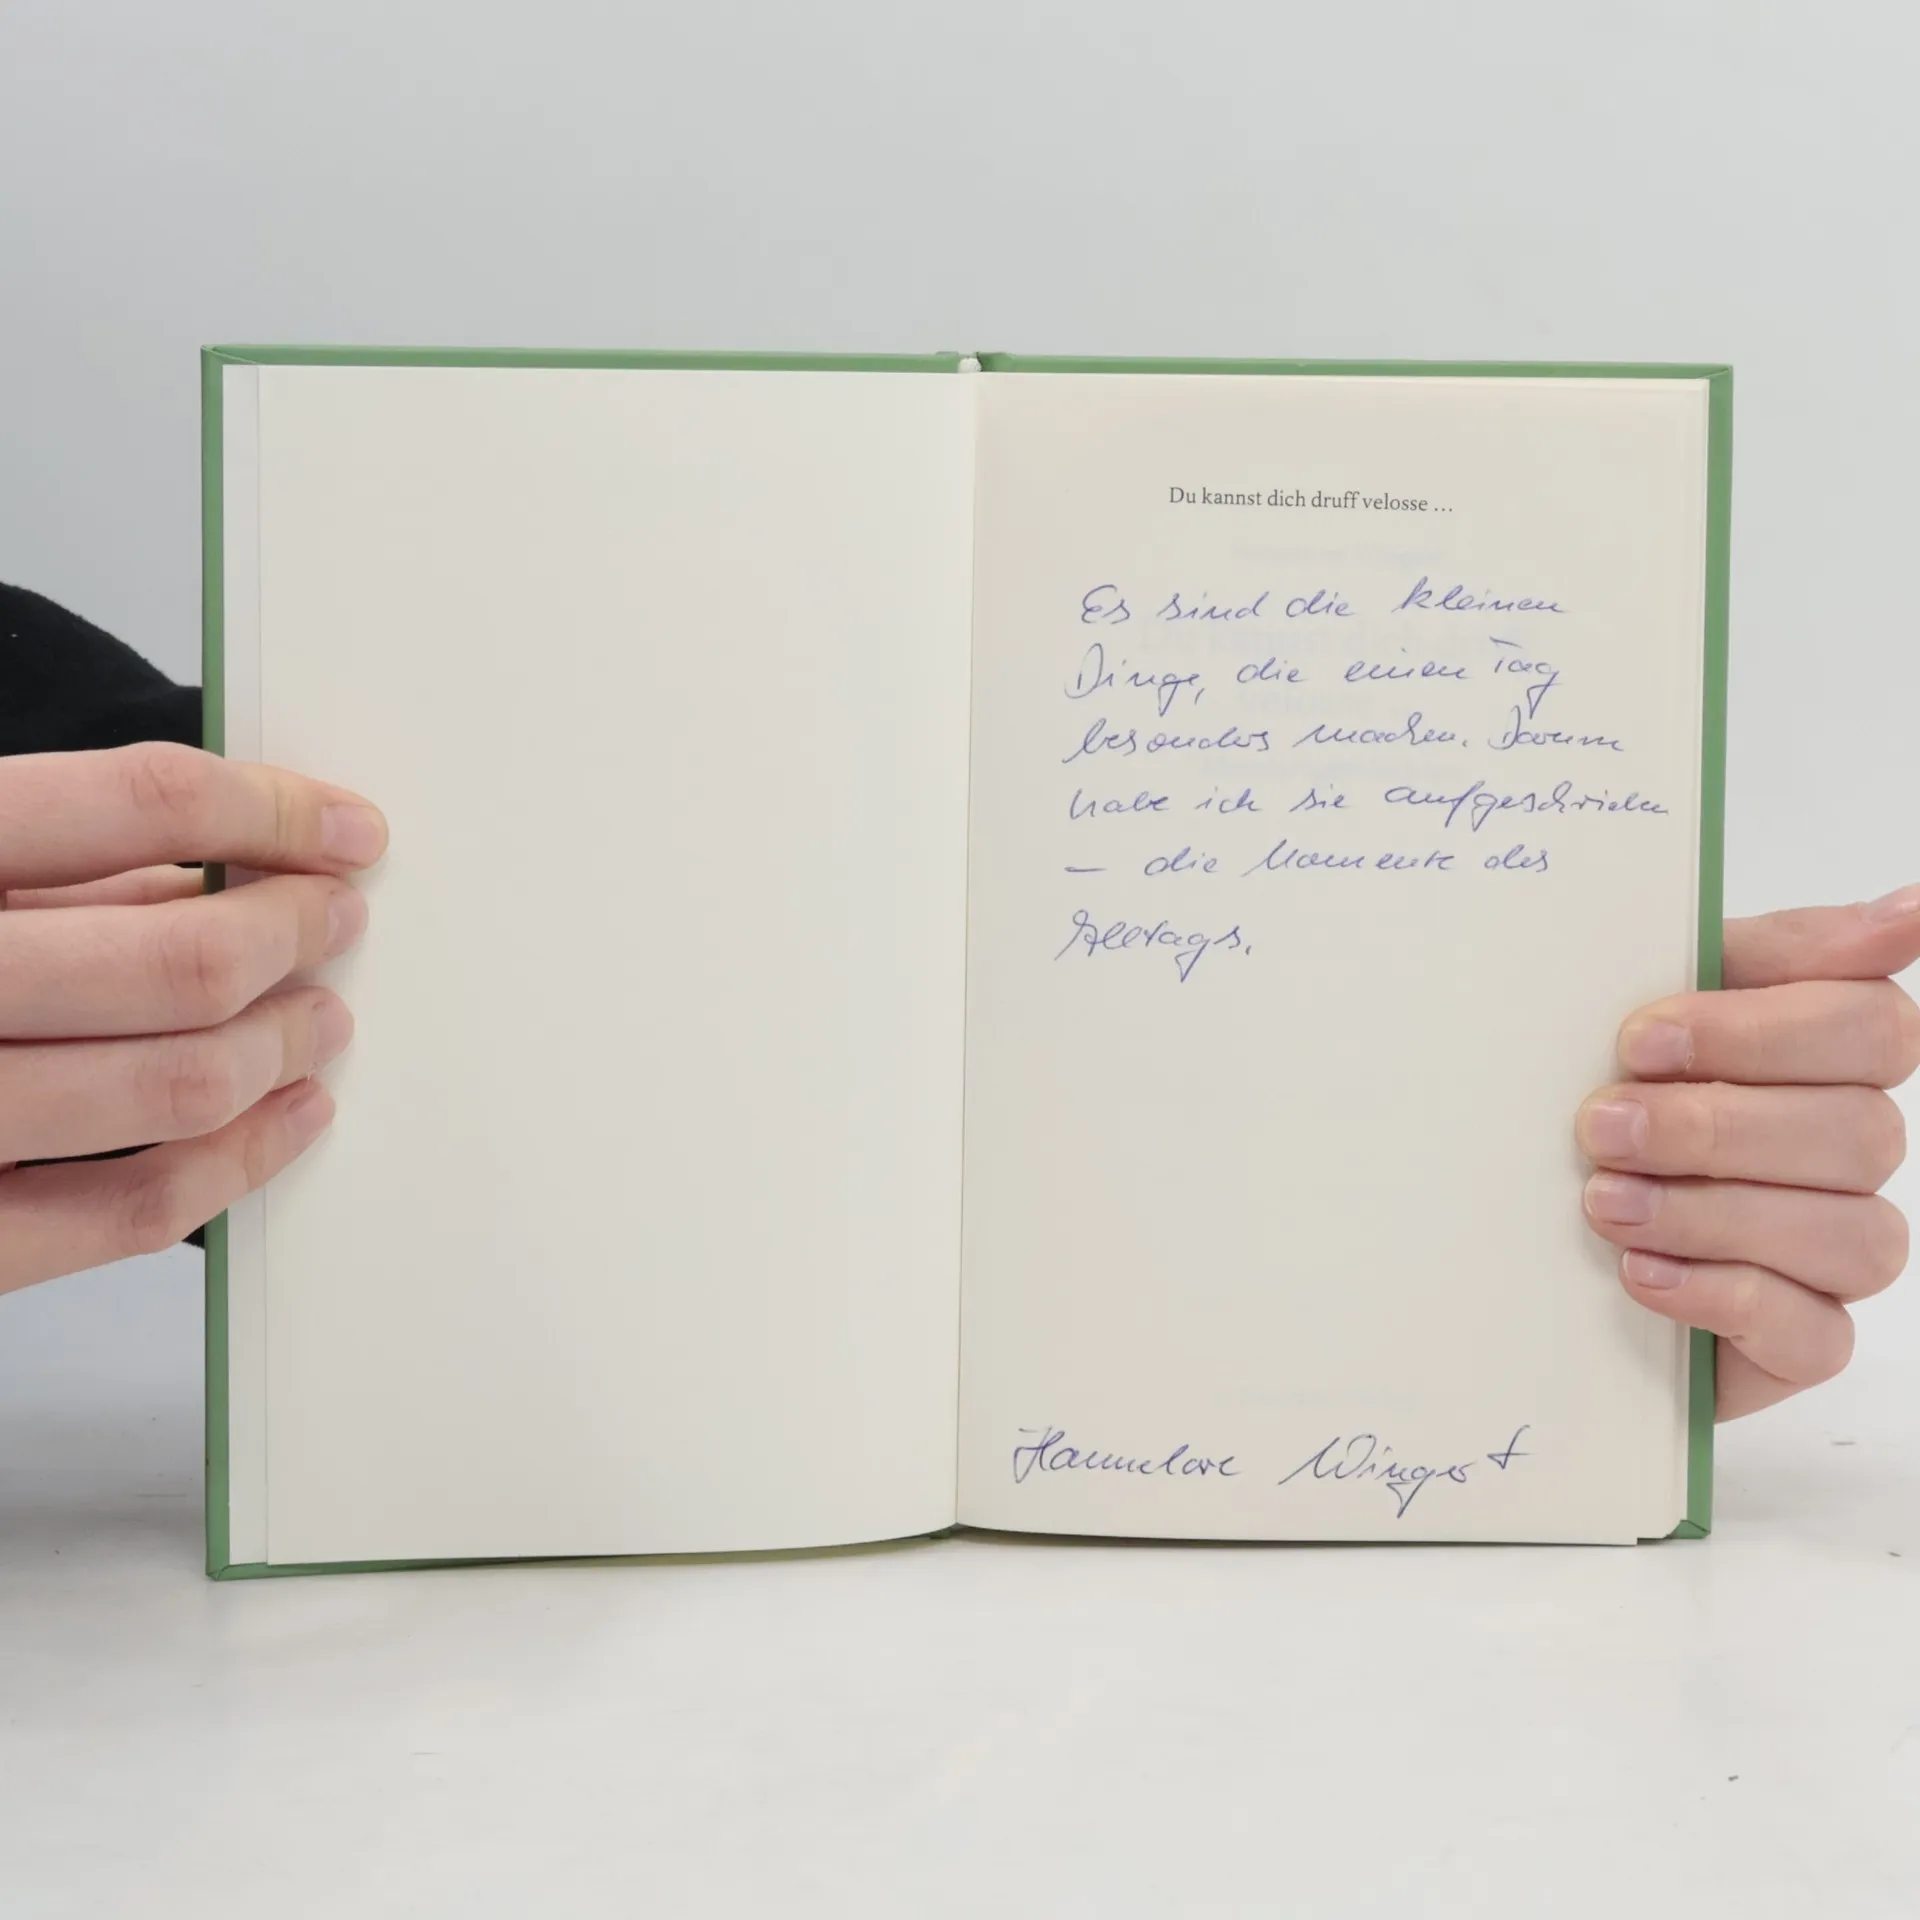 Du kannst dich druff velosse ...
Es sind die kleinen
Dinge, die einen Tag
besonders machen. Darum
habe ich sie aufgeschrieben
– die Momente des
Alltags.
Hannelore Wingert